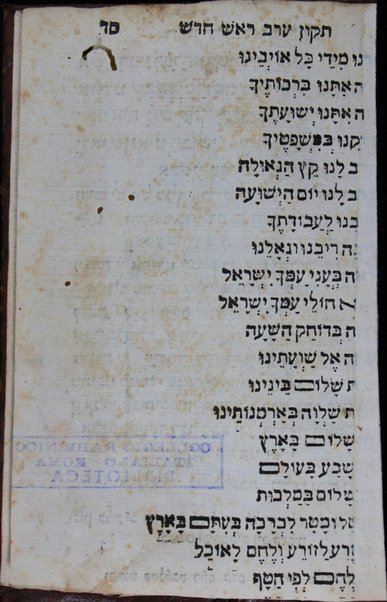 תקון ערב ראש חדש סד
נו מידי כל אויבינו
ה אתנו ברכותיך
ה אתנו ישועתך
קנו במשפטיך
ב לנו קץ הגאולה
ב לנו יום הישועה
בנו לעבודתך
ה ריבנו וגאלנו
ה בעני עמך ישראל
א חולי עמך ישראל
ה בדוחק השעה
ה אל שועתינו
ת שלום בינינו
ת שלוה בארמנותינו
שלום בארץ
שבע בעולם
שלום במלכות
טל ומטר לברכה בעתם בארץ
זרע לזורע ולחם לאוכל
לחם לפי הטף
COLLEGIO RABBINICO
ITALIANO - ROMA
BIBLIOTECA